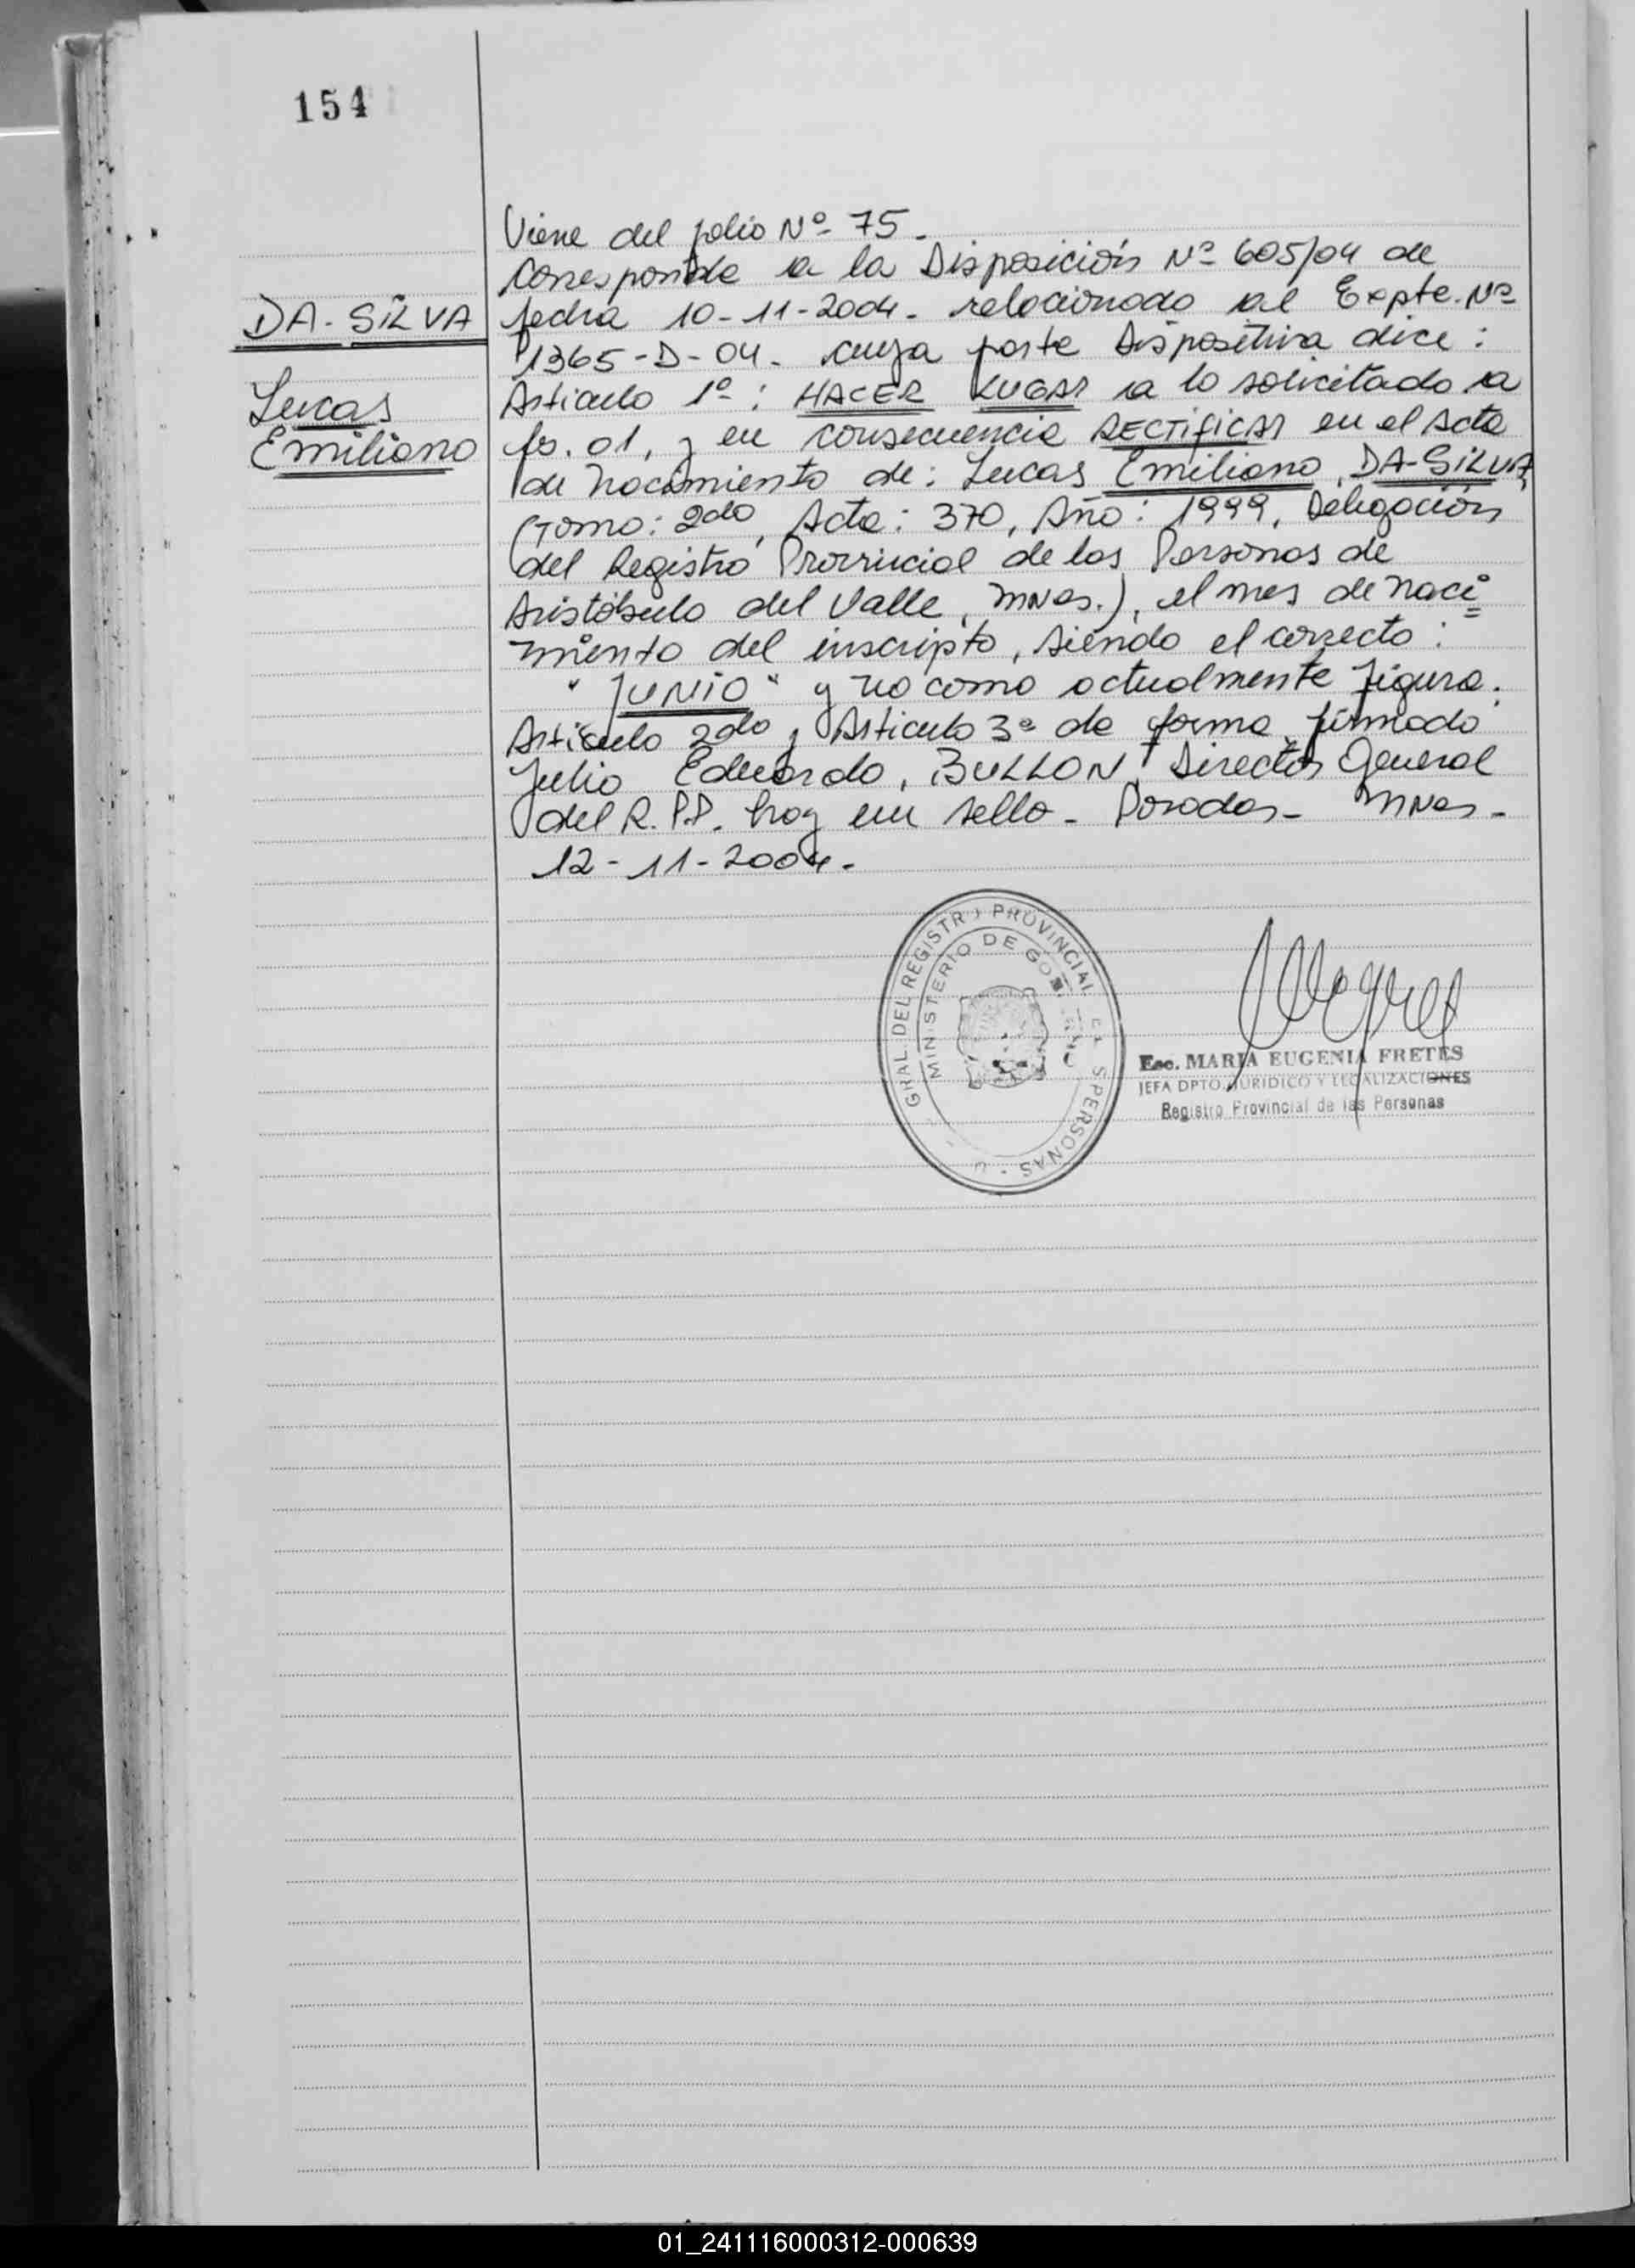 154
DA-SILVA
Lucas
Emiliano
Viene del folio Nº 75.
Corresponde a la Disposición Nº 605/04 de
fecha 10-11-2004. relacionado al Expte. Nº
1365-D-04. cuya parte Dispositiva dice:
Articulo 1º: HACER LUGAR a lo solicitado a
fs. 01, y en consecuencia RECTIFICAR en el Acta
de Nacimiento de: Lucas Emiliano, DA-SILVA,
(Tomo: 2do, Acta: 370, Año: 1999, Delegación
del Registro Provincial de las Personas de
Aristóbulo del Valle, MNes.), el mes de naci=
miento del inscripto, siendo el correcto:
"JUNIO" y no como actualmente figura.
Articulo 2do y Articulo 3º de forma, firmado
Julio Eduardo, BULLON, Director General
del R.P.P. hay un sello - Posadas - MNes -
12-11-2004.
GRAL. DEL REGISTRO PROVINCIAL
PERSONAS
MINISTERIO DE
Esc. MARIA EUGENIA FRETES
JEFA DPTO. JURIDICO Y LEGALIZACIONES
Registro Provincial de las Personas
01_241116000312-000639